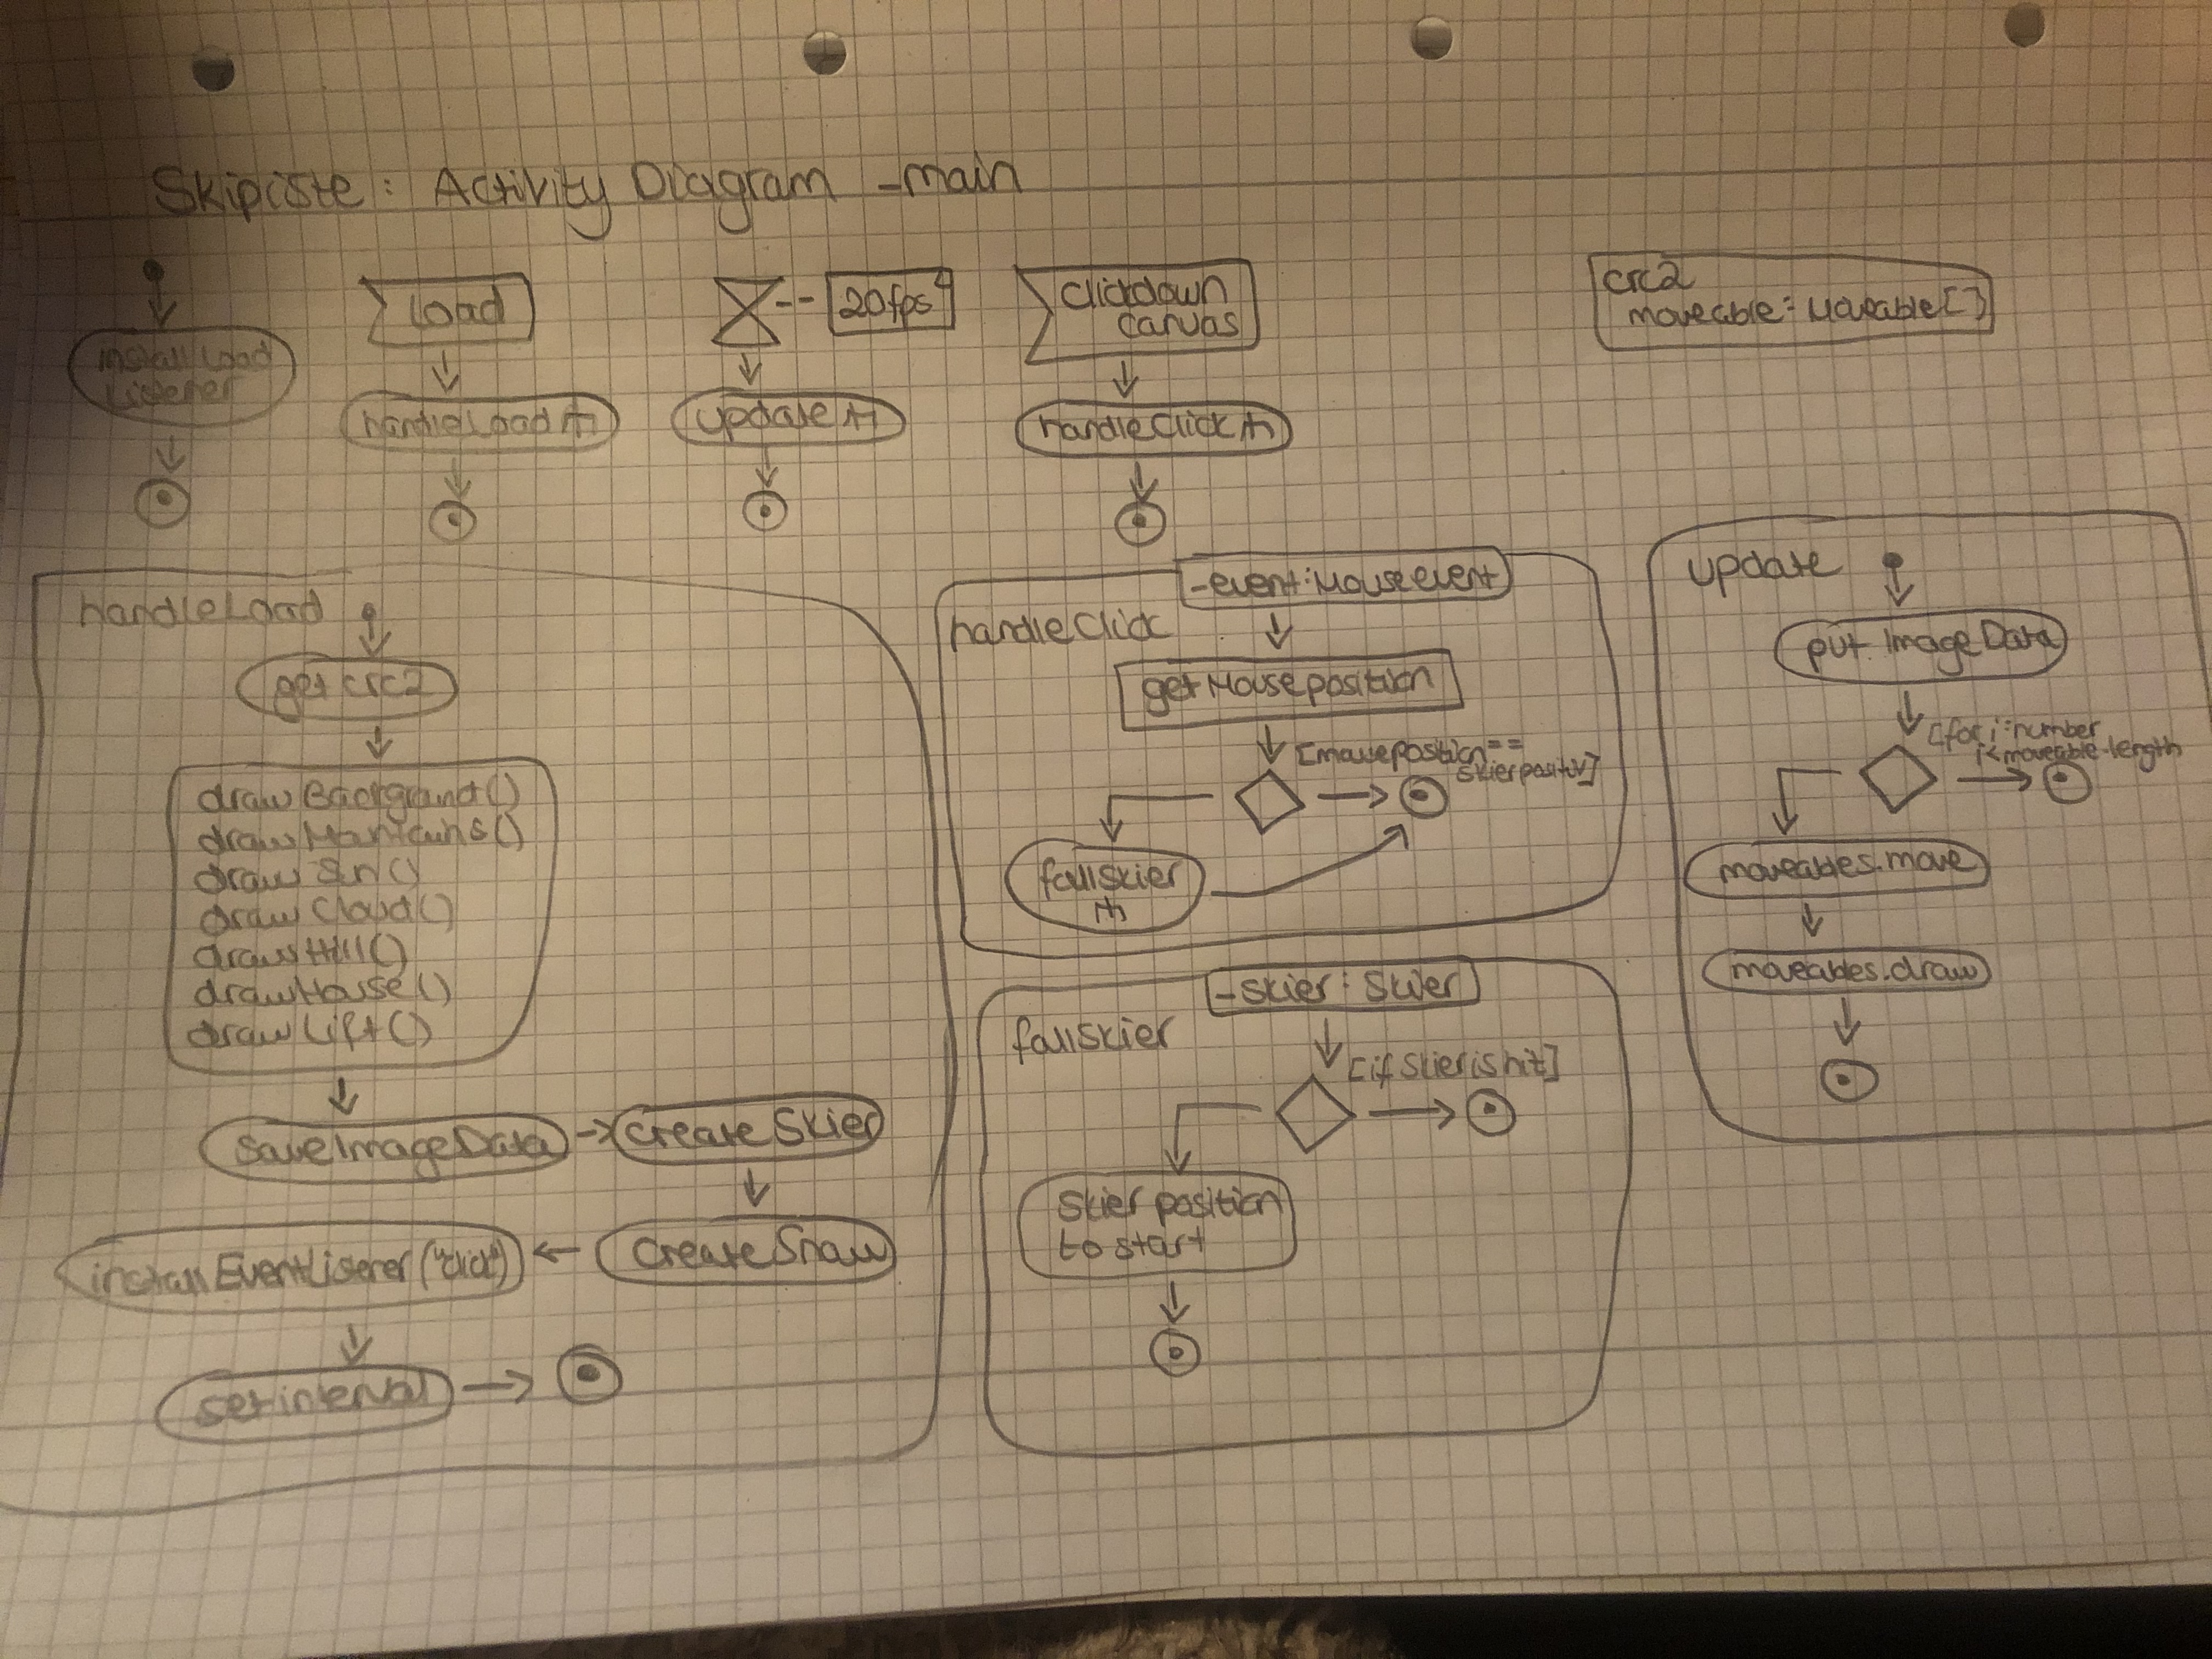 Skipiste: Activity Diagram -main
install load
Listener
load
handleLoad
20fps
update
Clickdown
Canvas
handleClick
crc2
moveable: Moveable[]
handleLoad
get crc2
drawBackground()
drawMountains()
draw Sun()
draw Cloud()
drawHill()
drawHouse()
drawLift()
saveImageData
CreateSkier
CreateSnow
install EventListener("click")
setinterval
handleClick
-event: Mouseevent
get Mouseposition
[mouseposition ==
fallSkier
fallSkier
-Skier: Skier
[if Skier is hit]
Skier position
to start
update
put ImageData
[for i:number
i<moveable.length
moveables.move
moveables.draw